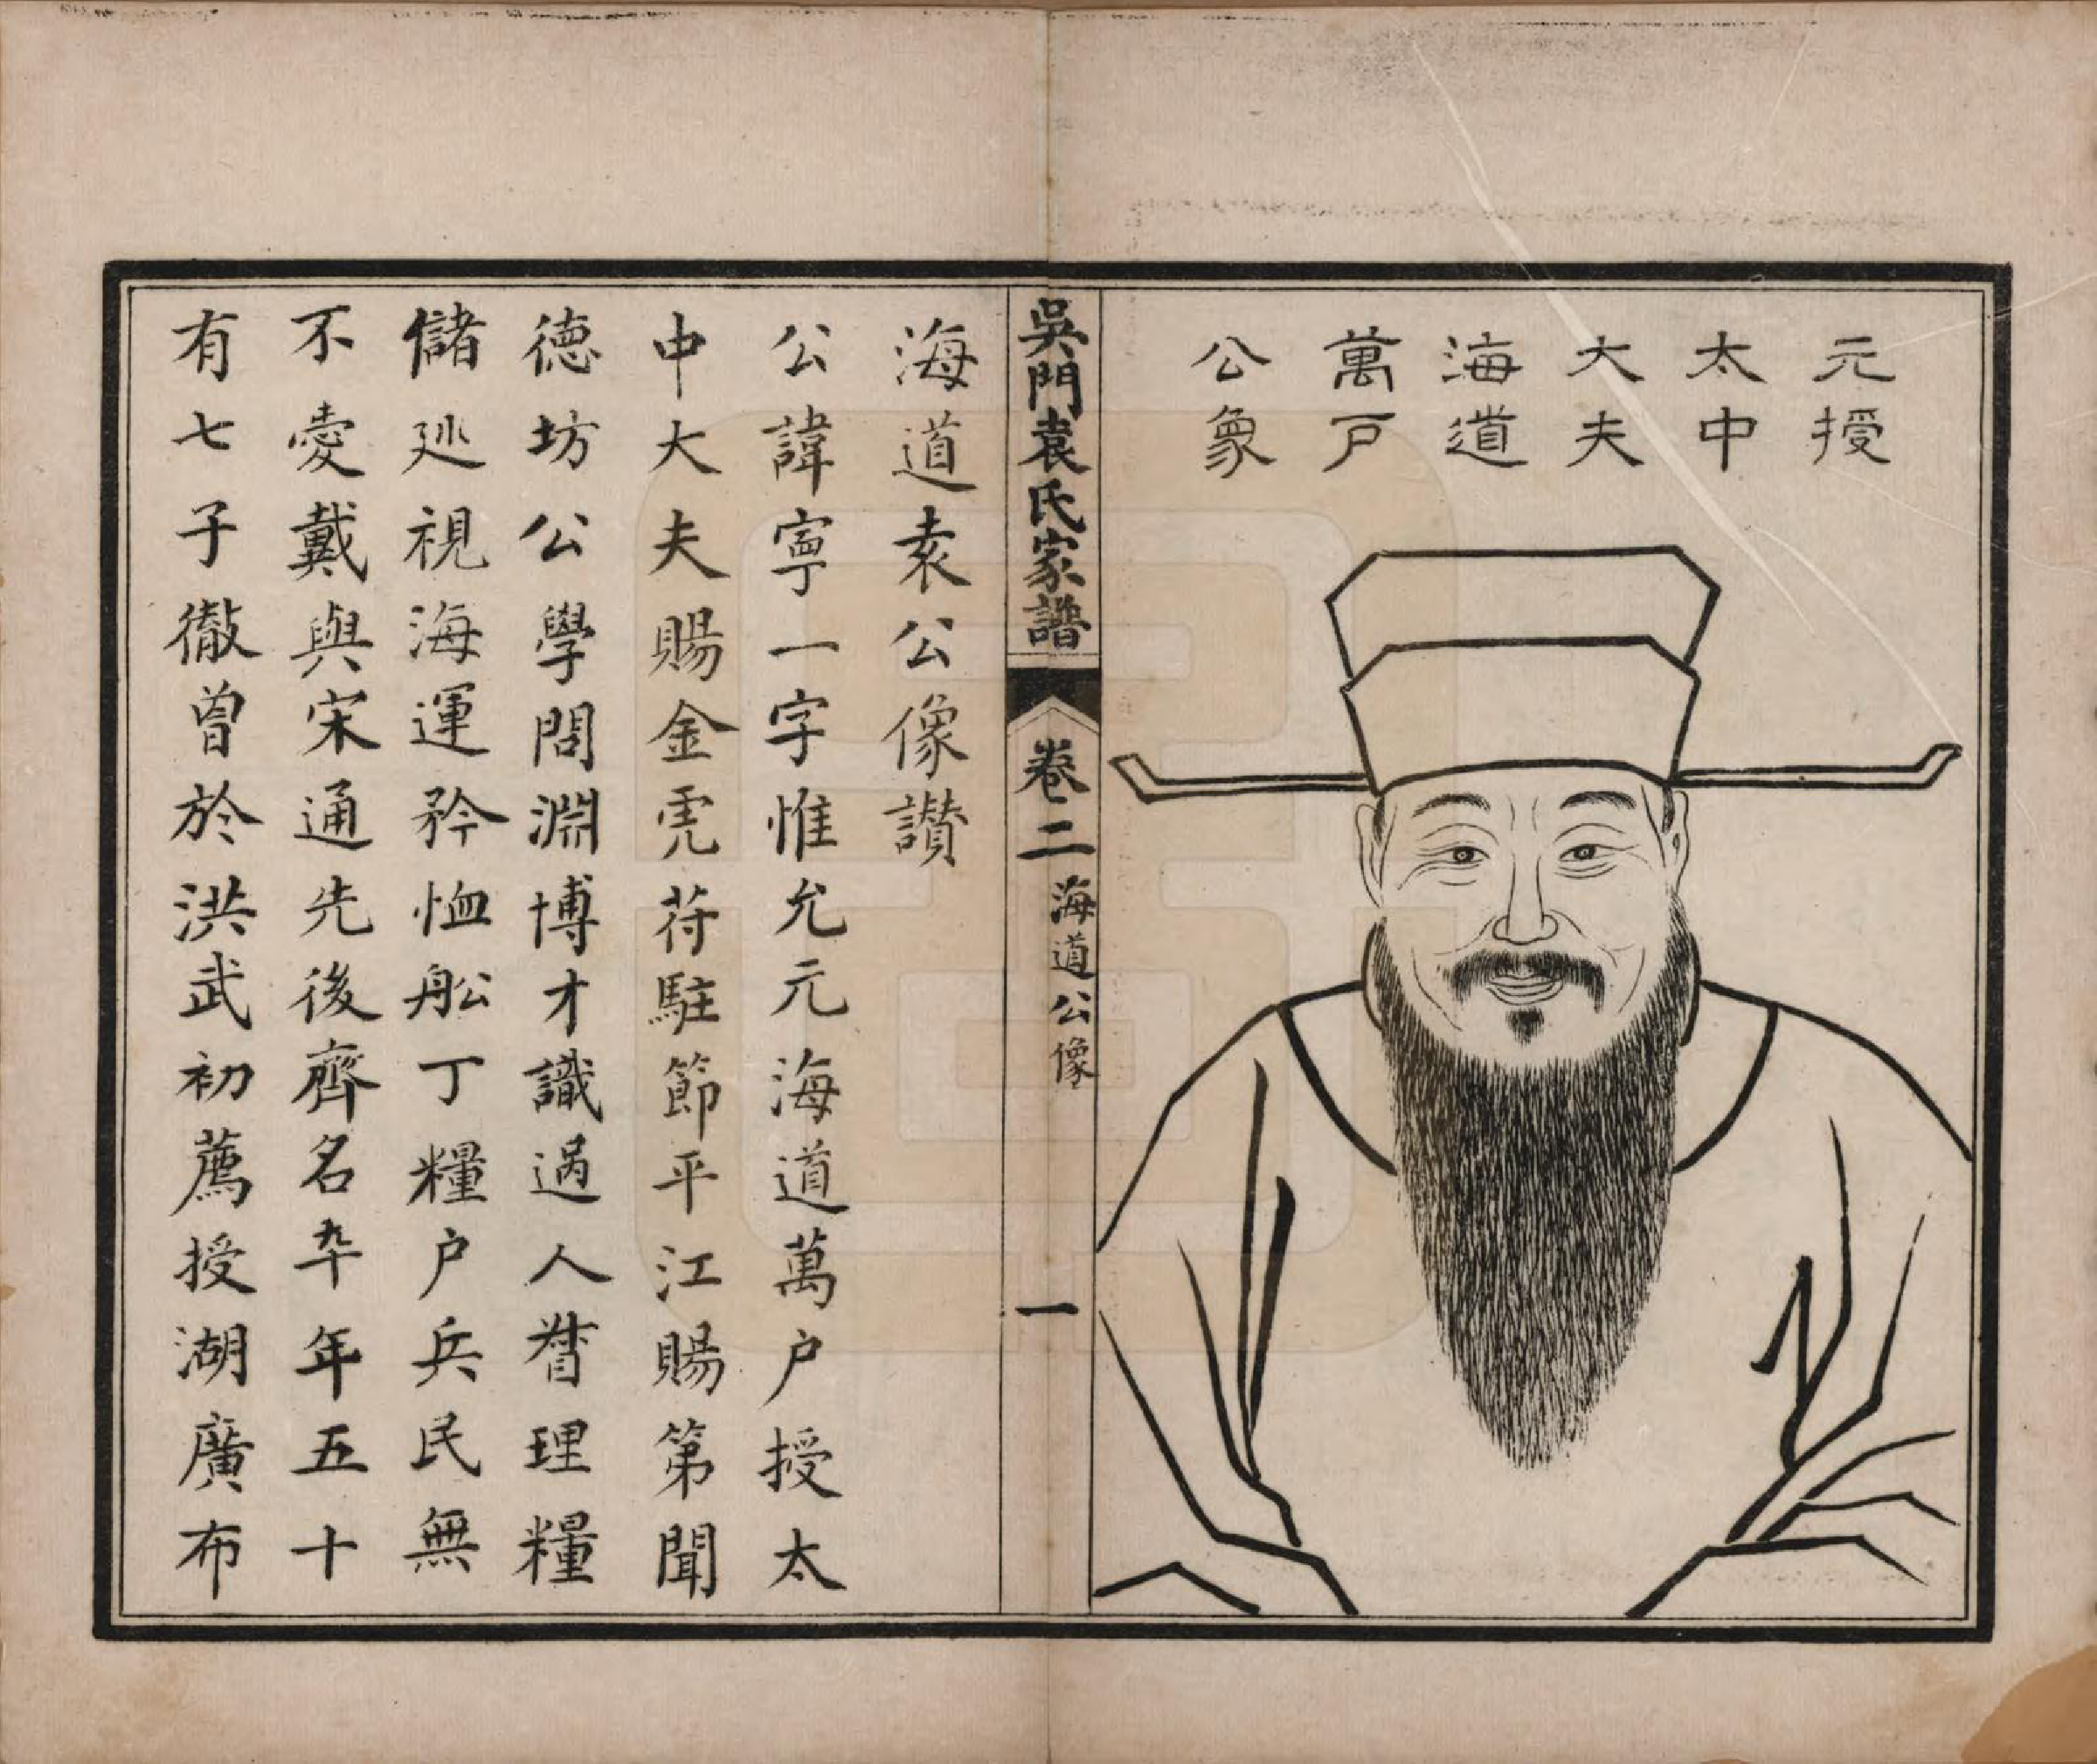 元授
太中
大夫
海道
萬戶
公象
吳門袁氏家譜
卷二
海道公像
一
海道袁公像讃
公諱寕一字惟允元海道萬户授太
中大夫賜金虎符駐節平江賜第聞
德坊公學問淵博才識過人督理糧
儲廵視海運矜恤舩丁糧户兵民無
不愛戴與宋通先後齊名卒年五十
有七子徹曾於洪武初薦授湖廣布